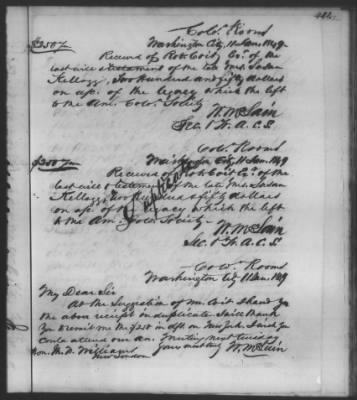 Colo. Rooms
$250/
Washington City, 11 Jan. 1849
Received of Robt. Coit Exr. of the
last will & testament of the late Mrs. Susan
Kellogg, Two hundred and fifty dollars
on a/c. of the legacy which she left
to the Am. Colo. Society
W. McLain
Sec. & Tr. A. C. S.
Colo. Rooms
Washington City 11 Jan. 1849
Received of Robt. Coit Exr. of the
last will & testament of the late Mrs. Susan
Kellogg, two hundred & fifty dollars
on a/c of the legacy which she left
to the Am. Colo. Society
Duplicate
W. McLain
Sec. & Tr. A. C. S.
Colo. Rooms
Washington City 11 Jan. 1849
My Dear Sir
At the suggestion of Mr. Coit I have
the above receipt in duplicate I will thank
you to remit me the
could attend our An. Meeting next Tuesday
Yours most truly W. McLain
Hon. T. W. Williams
New London